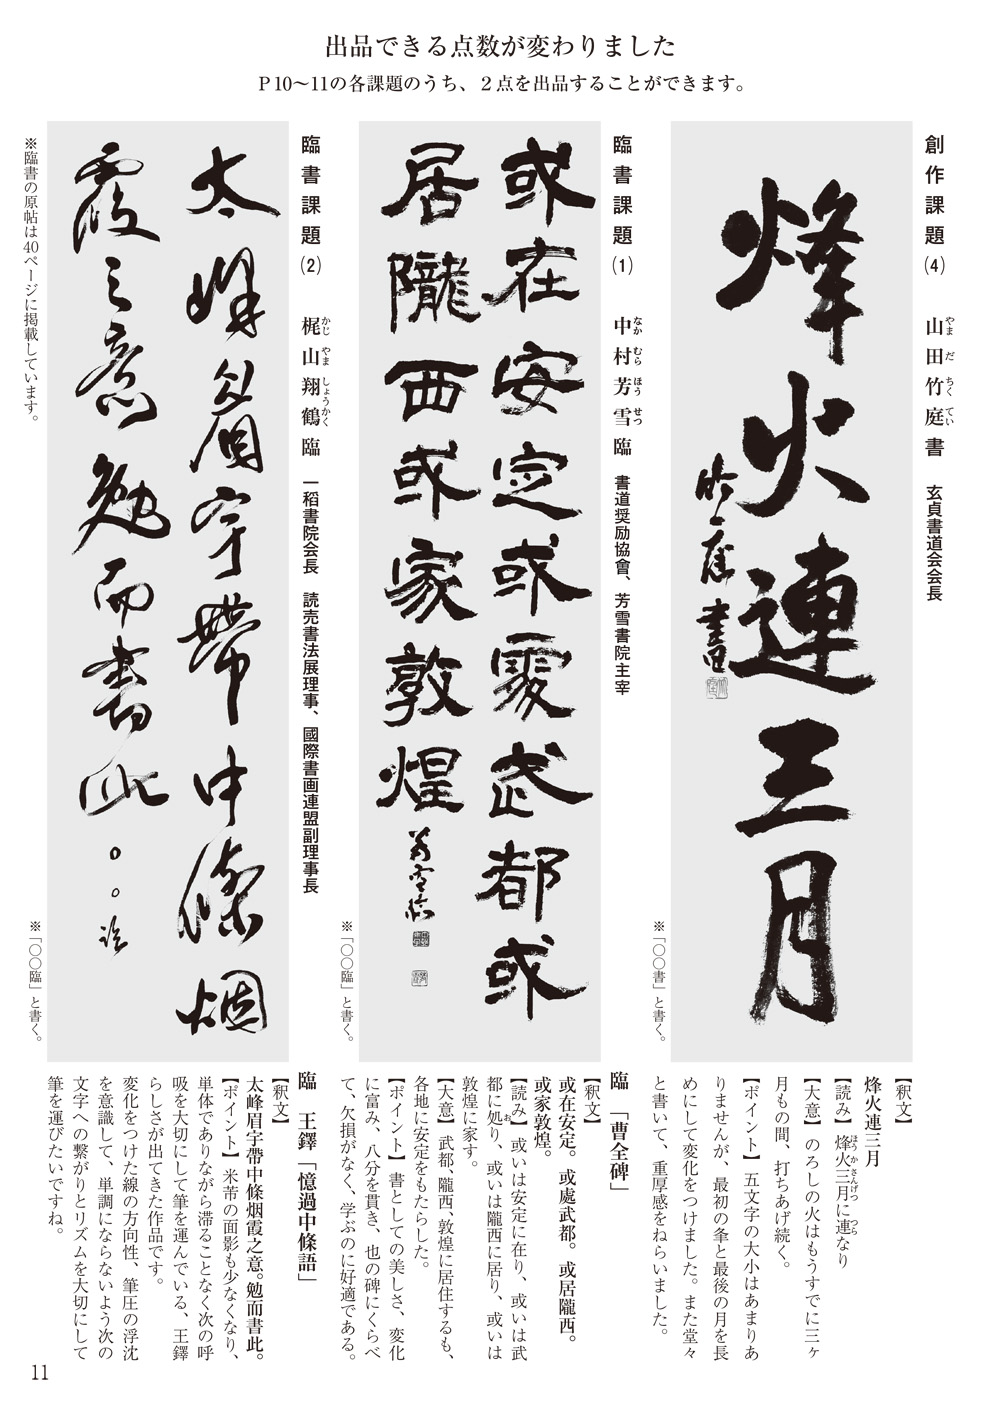 出品できる点数が変わりました
P10〜11の各課題のうち、２点を出品することができます。
創作課題(4)　山田竹庭書　玄貞書道会会長
やまだちくてい
烽火連三月
竹庭書
※「〇〇書」と書く。
【釈文】
烽火連三月
【読み】烽火三月に連なり
ほうかさんげつ　つら
【大意】のろしの火はもうすでに三ヶ
月もの間、打ちあげ続く。
【ポイント】五文字の大小はあまりあ
りませんが、最初の夆と最後の月を長
めにして変化をつけました。また堂々
と書いて、重厚感をねらいました。
臨書課題(1)　中村芳雪臨　書道奨励協會、芳雪書院主宰
なかむらほうせつ
或在安定或處武都或
居隴西或家敦煌
芳雪臨
※「〇〇臨」と書く。
臨　「曹全碑」
【釈文】
或在安定。或處武都。或居隴西。
或家敦煌。
【読み】或いは安定に在り、或いは武
都に処り、或いは隴西に居り、或いは
お
敦煌に家す。
【大意】武都、隴西、敦煌に居住するも、
各地に安定をもたらした。
【ポイント】書としての美しさ、変化
に富み、八分を貫き、他の碑にくらべ
て、欠損がなく、学ぶのに好適である。
臨書課題(2)　梶山翔鶴臨　一稻書院会長　読売書法展理事、國際書画連盟副理事長
かじやましょうかく
太峰眉字帶中條烟
霞之意勉而書此。。臨
※「〇〇臨」と書く。
臨　王鐸「憶過中條語」
【釈文】
太峰眉字帶中條烟霞之意。勉而書此。
【ポイント】米芾の面影も少なくなり、
単体でありながら滞ることなく次の呼
吸を大切にして筆を運んでいる、王鐸
らしさが出てきた作品です。
変化をつけた線の方向性、筆圧の浮沈
を意識して、単調にならないよう次の
文字への繋がりとリズムを大切にして
筆を運びたいですね。
※臨書の原帖は40ページに掲載しています。
11